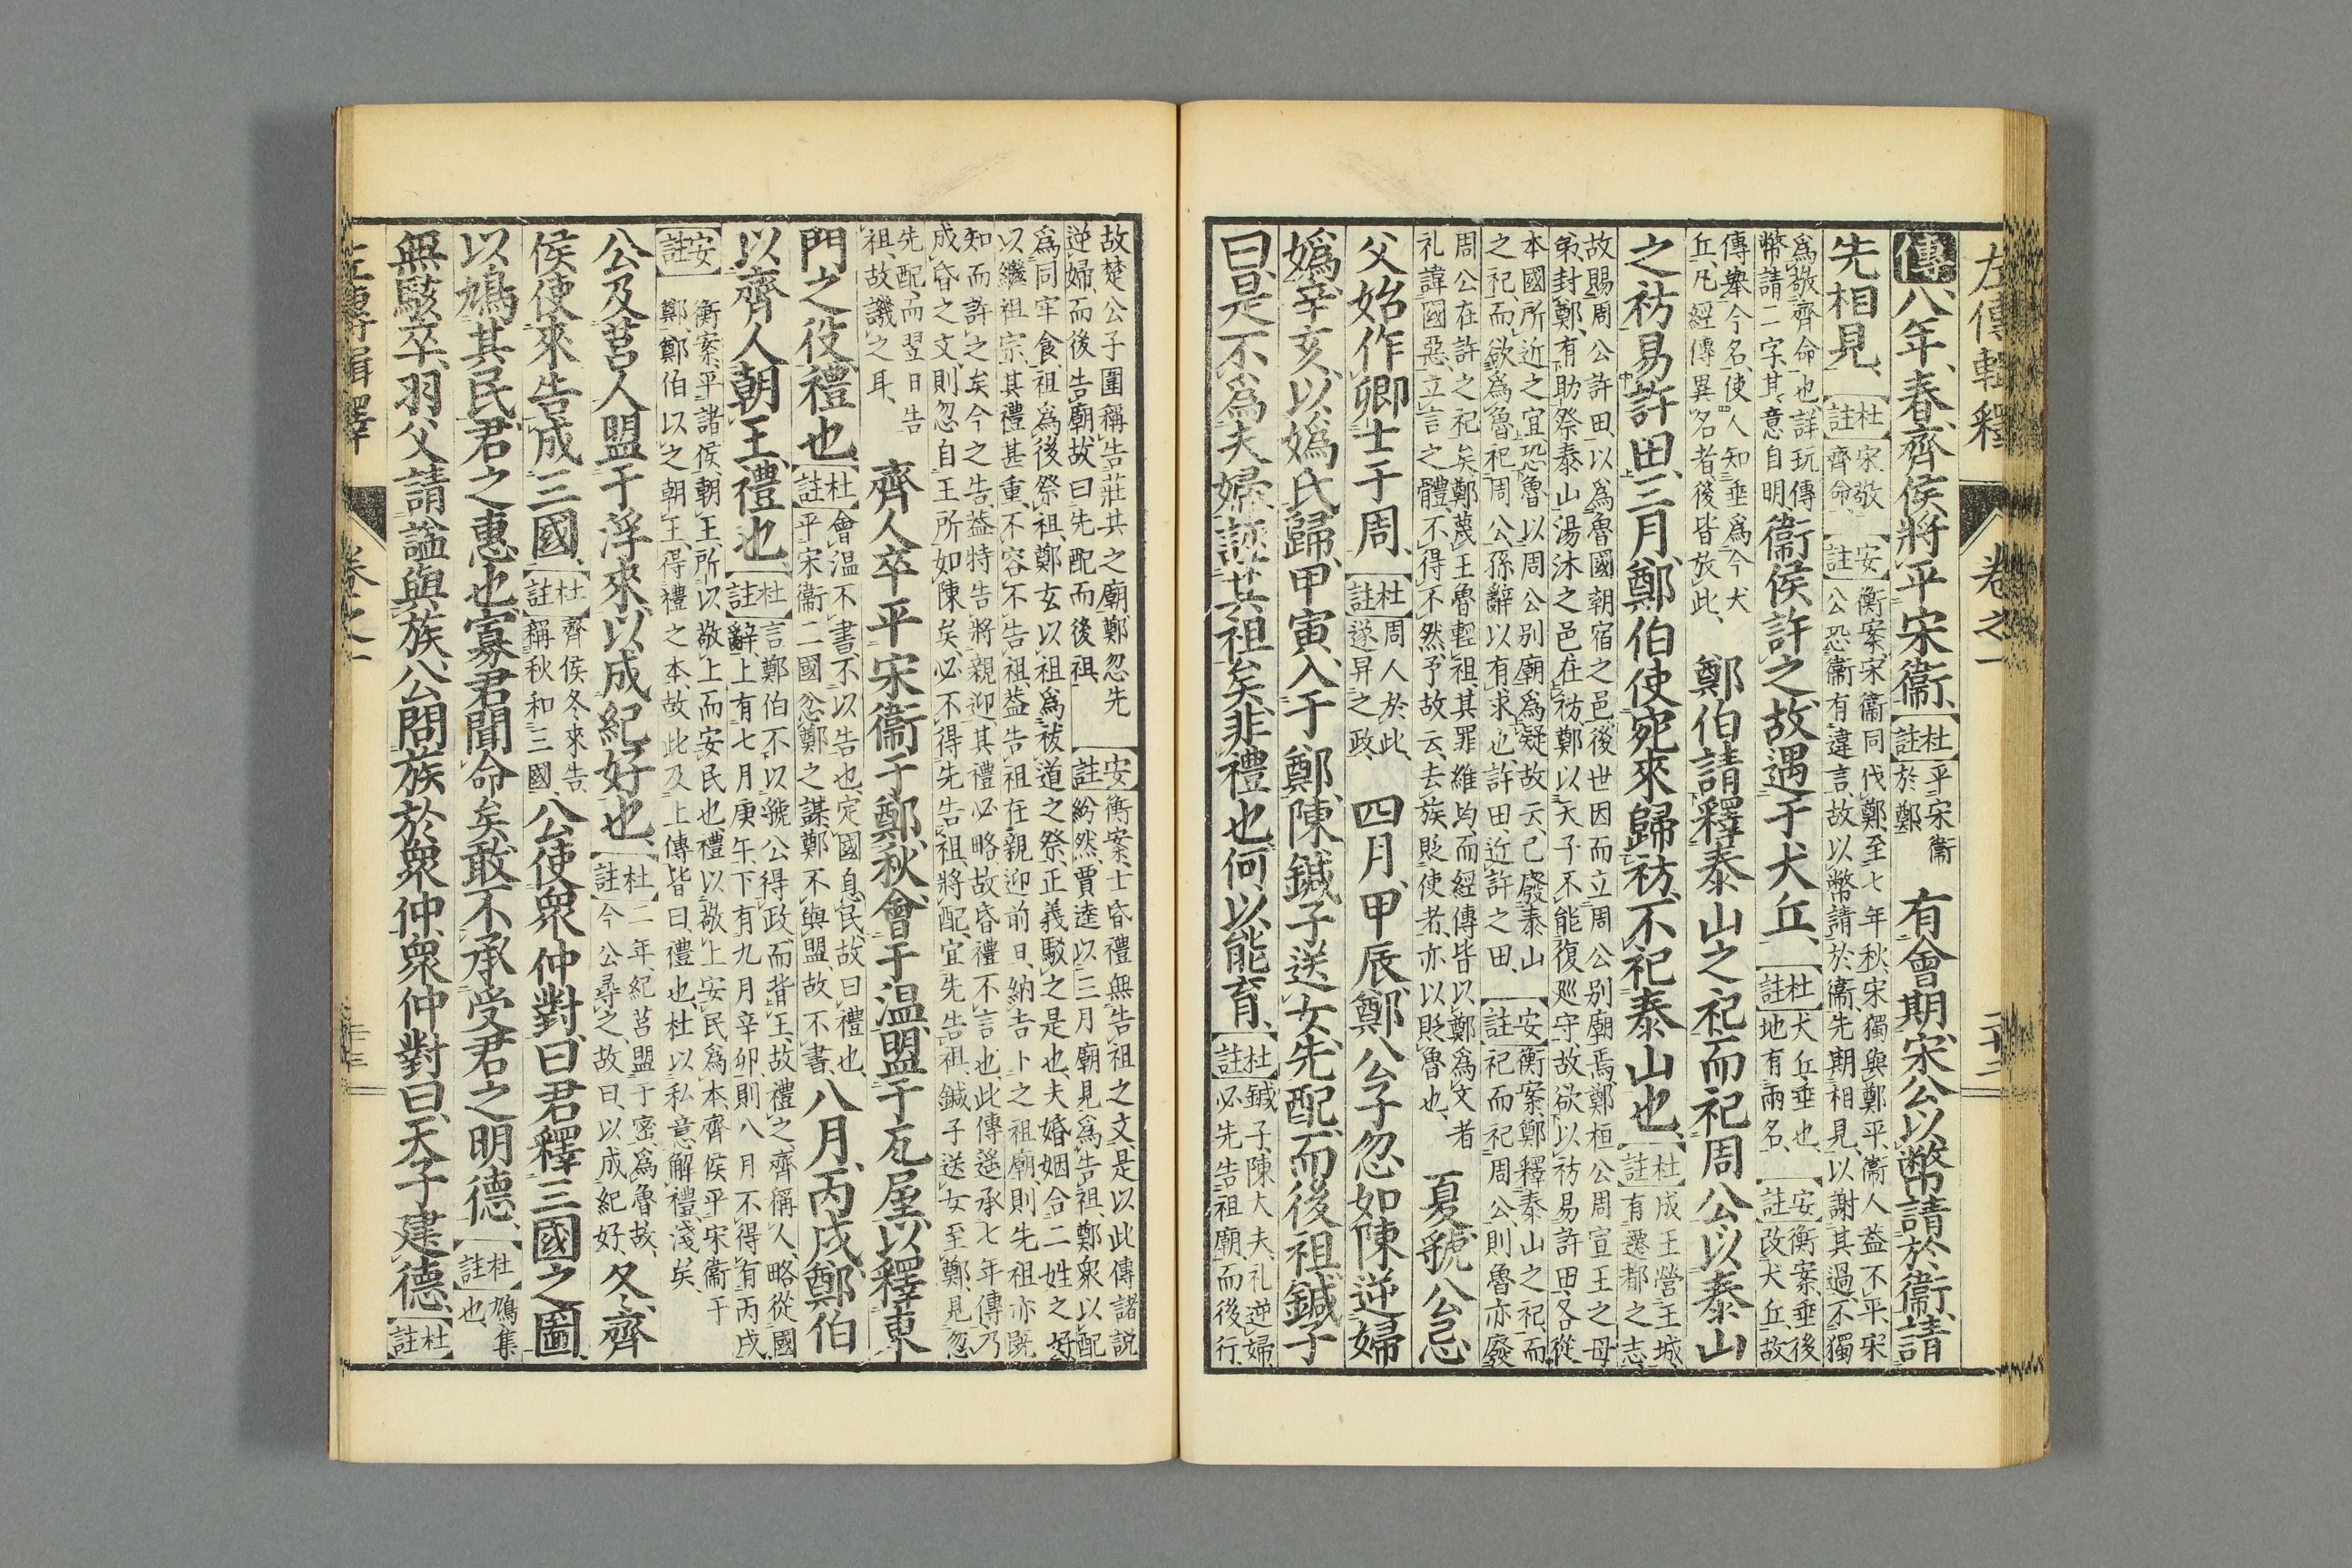 左傳輯釋 卷之一 二十二
傳八年、春、齊侯將平宋衞、【杜註】平宋衞於鄭、有會期、宋公以幣請於衞、請
先相見、【杜註】宋敬齊命、【安註】衡案、宋衞同伐鄭、至七年秋、宋獨與鄭平、衞人益不平、宋公恐衞有違言、故以幣請於衞、先期相見、以謝其過、不獨
爲敬齊命也、詳玩傳幣請二字、其意自明、衞侯許之、故遇于犬丘、【杜註】犬丘垂也、地有兩名、【安註】衡案、垂後改犬丘、故
傳舉今名、使人知垂爲今犬丘、凡經傳異名者、後皆放此、鄭伯請釋泰山之祀而祀周公、以泰山
之祊易許田、三月、鄭伯使宛來歸祊、不祀泰山也、【杜註】成王營王城、有遷都之志、
故賜周公許田、以爲魯國朝宿之邑、後世因而立周公别廟焉、鄭桓公周宣王之母弟、封鄭、有助祭泰山湯沐之邑在祊、鄭以天子不能復巡守、故欲以祊易許田、各從
本國所近之宜、恐魯以周公别廟爲疑、故云、已廢泰山之祀、而欲爲魯祀周公、孫辭以有求也、許田、近許之田、【安註】衡案、鄭釋泰山之祀、而祀周公、則魯亦廢
周公在許之祀矣、鄭蔑王魯輕祖、其罪維均、而經傳皆以鄭爲文者礼諱國惡、立言之體、不得不然、予故云、去族貶使者、亦以貶魯也、夏、虢公忌
父始作卿士于周、【杜註】周人於此、遂昇之政、四月、甲辰、鄭公子忽如陳逆婦
嬀、辛亥、以嬀氏歸、甲寅、入于鄭、陳鍼子送女、先配而後祖、鍼子
曰、是不爲夫婦、誣其祖矣、非禮也、何以能育、【杜註】鍼子、陳大夫、礼逆婦必先告祖廟、而後行、
故楚公子圍稱告莊共之廟、鄭忽先逆婦、而後告廟、故曰先配而後祖、【安註】衡案、士昏禮無告祖之文、是以此傳諸説紛然、賈逵以三月廟見爲告祖、鄭衆以配
爲同牢食、祖爲後祭祖、鄭玄以祖爲祓道之祭、正義駁之是也、夫婚姻合二姓之好以繼祖宗、其禮甚重、不容不告祖、蓋告祖在親迎前日、納吉卜之祖廟、則先祖亦既
知而許之矣、今之告、蓋特告將親迎、其禮必略、故昏禮不言也、此傳遙承七年傳乃成昏之文、則忽自王所如陳矣、必不得先告祖、將配、宜先告祖、鍼子送女至鄭、見忽
先配、而翌日告祖、故譏之耳、齊人卒平宋衞于鄭、秋、會于温、盟于瓦屋、以釋東
門之役、禮也、【杜註】會温不書、不以告也、定國息民、故曰禮也、平宋衞二國忿鄭之謀、鄭不與盟、故不書、八月、丙戌、鄭伯
以齊人朝王、禮也、【杜註】言鄭伯不以虢公得政、而背王、故禮之、齊稱人、略從國辭、上有七月庚午、下有九月辛卯、則八月不得有丙戌、
【安註】衡案、平諸侯、朝王所以敬上而安民也、禮以敬上安民爲本、齊侯平宋衞于鄭、鄭伯以之朝王、得禮之本、故此及上傳皆曰、禮也、杜以私意解禮淺矣、
公及莒人盟于浮來、以成紀好也、【杜註】二年、紀莒盟于密、爲魯故、今公尋之、故曰、以成紀好、冬、齊
侯使來告成三國、【杜註】齊侯冬來告、稱秋和三國、公使衆仲對曰、君釋三國之圖、
以鳩其民、君之惠也、寡君聞命矣、敢不承受君之明德、【杜註】鳩集也、
無駭卒、羽父請謚與族、公問族於衆仲、衆仲對曰、天子建德、【杜註】
左傳輯釋 卷之一